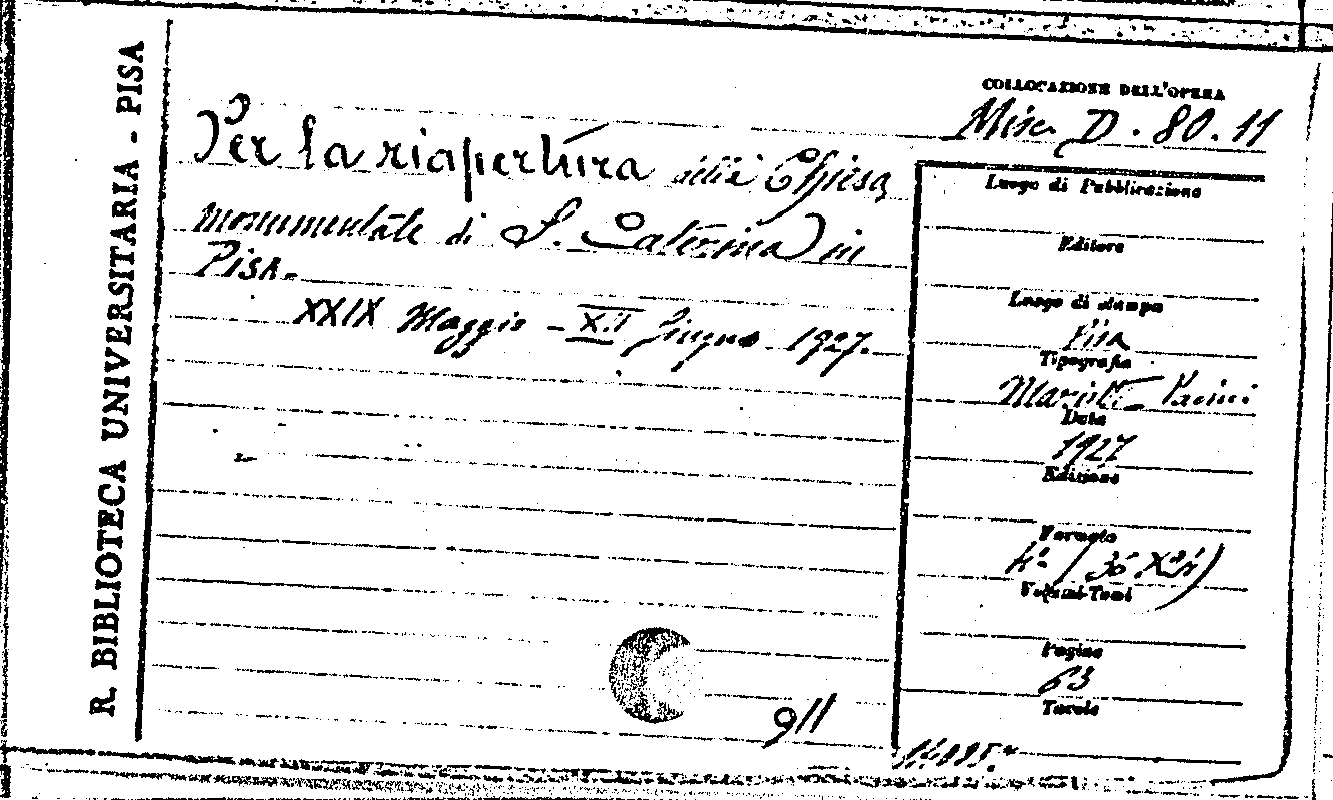 R. BIBLIOTECA UNIVERSITARIA - PISA
COLLOCAZIONE DELL'OPERA
Misc. D. 80. 11
Per la riapertura della Chiesa
monumentale di S. Caterina in
Pisa.
XXIX Maggio - XII Giugno 1927.
Luogo di Pubblicazione
Editore
Luogo di stampa
Pisa
Tipografia
Mariotti Pacini
Data
1927
Edizione
Formato
4° (35 X
Volumi-Tomi
Pagine
63
Tavole
911